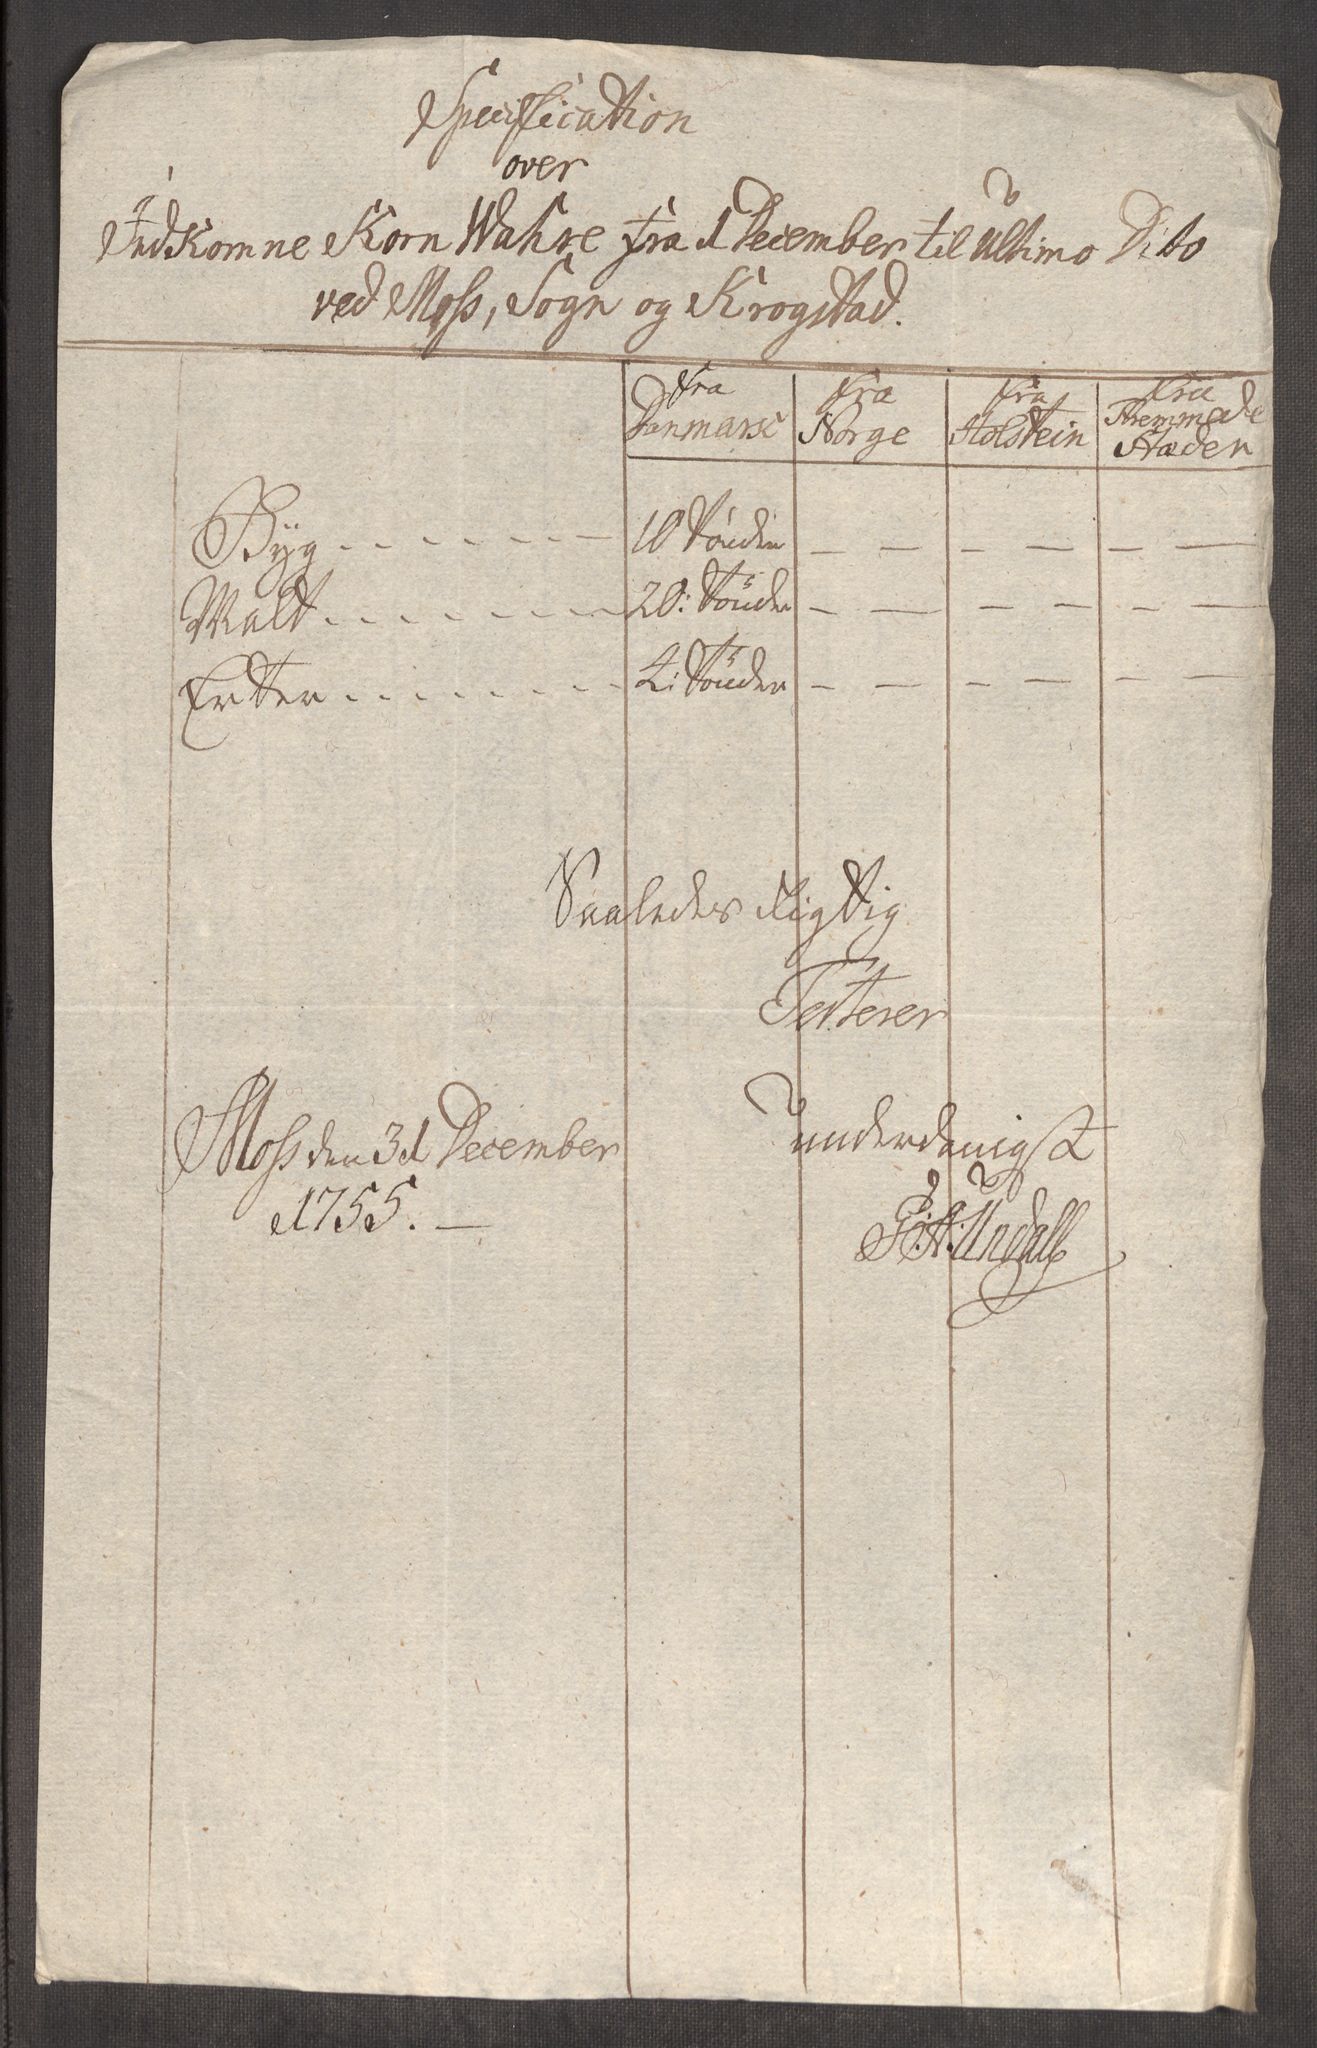 Specification
over
IndKomne Korn Wahre fra 1 December til Ultimo Dito
ved Moss, Sogn og Krogstad.
fra Danmark fra Norge fra Holstein fra Fremmede Stæder
Byg . . . . . . — 10 Tönder — — — — — —
Malt . . . . . . — 20: Tönder — — — — — —
Erter . . . . . . — 4: Tönder — — — — — —
Saaledes Rigtig
Testerer
Moss den 31 December underdanigst
1755. —